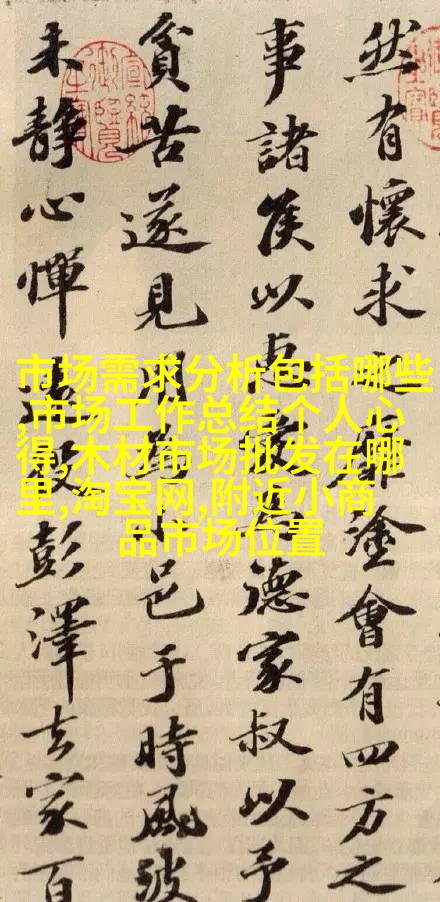 然有懷求靡塗會有四方之
事諸侯以惠愛為德家叔以予
貧苦遂見用小邑于時風波
未靜心憚遠役彭澤去家百
市场需求分析包括哪些
,市场工作总结个人心
得,木材市场批发在哪
里,淘宝网,附近小商
品市场位置